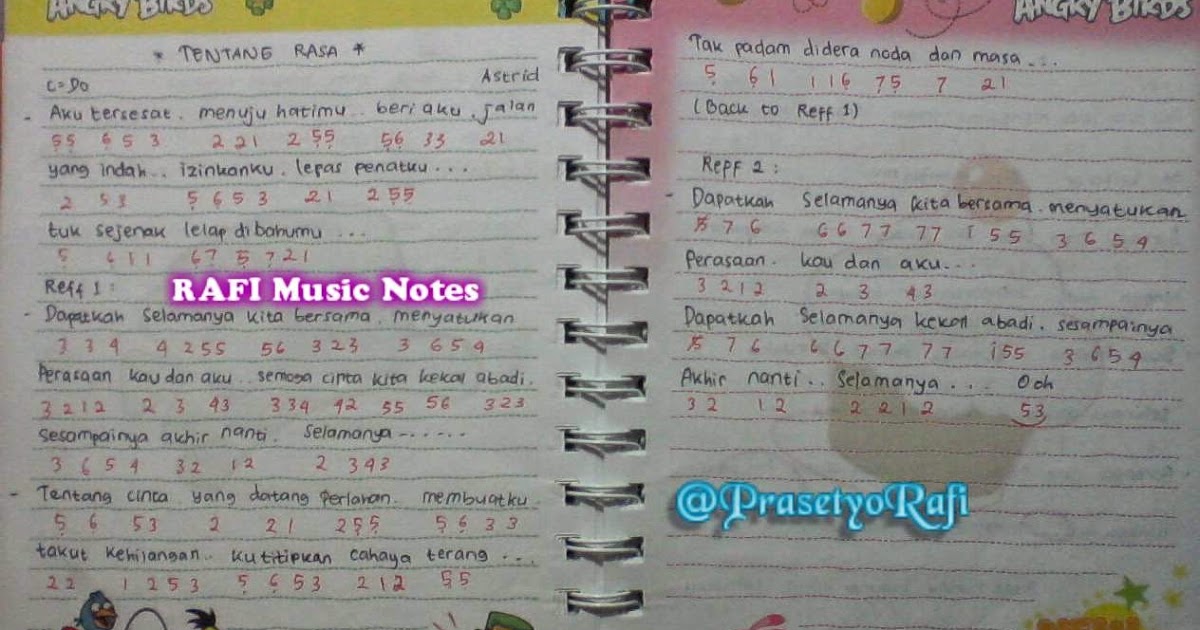 ANGRY BIRDS
* TENTANG RASA *
C=Do Astrid
- Aku tersesat. menuju hatimu.. beri aku jalan
55 653 221 255 56 33 21
yang indah.. izinkanku. lepas penatku...
2 53 5653 21 255
tuk sejenak lelap dibahumu ...
5 611 67 5721
Reff 1:
RAFI Music Notes
- Dapatkah Selamanya kita bersama. menyatukan
334 4255 56 323 3 654
Perasaan kau dan aku.. semoga cinta kita kekal abadi.
3212 2 3 43 334 42 55 56 323
Sesampainya akhir nanti. Selamanya ------
3654 32 12 2 343
- Tentang cinta yang datang perlahan. membuatku
56 53 2 21 255 5633
takut kehilangan.. ku titipkan cahaya terang ...
22 1253 5653 212 55
ANGRY BIRDS
Tak padam didera noda dan masa ...
5 61 116 75 7 21
(Back to Reff 1)
Reff 2:
- Dapatkah Selamanya kita bersama. menyatukan
576 6677 77 i55 3654
Perasaan. kau dan aku...
3212 2 3 43
Dapatkah Selamanya kekal abadi. sesampainya
576 6677 77 i55 3654
Akhir nanti.. Selamanya.... Ooh
32 12 2212 53
@PrasetyoRafi